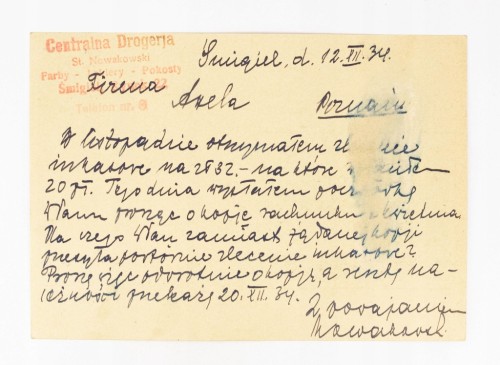 Centralna Drogerja
St. Nowakowski
Farby - Lakiery - Pokosty
Śmigiel
Telefon nr. 8
Śmigiel, d. 12.XII.34.
Firma
Axela Poznań
W listopadzie otrzymałem
inkasowe na zł 32.- na które
20 zł. Tego dnia wysłałem
Wam prosząc o kopję rachunku z kwietnia.
Na czego Wam zamiast żądanej kopji
przysyła ponownie zlecenie inkasowe?
Proszę więc odwrotnie o kopję, a resztę na-
leżności przekażę 20.XII.34.
Z poważaniem
Nowakowski